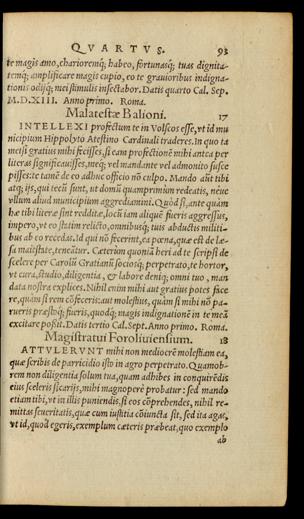 QVARTVS. 93
te magis amo, charioremq́; habeo, fortunasq́; tuas dignita-
temq́; amplificare magis cupio, eo te grauioribus indigna-
tionis odijq́; mei stimulis insectabor. Datis quarto Cal. Sep.
M.D.XIII. Anno primo. Roma.
Malatestæ Balioni. 17
INTELLEXI profectum te in Volscos esse, vt id mu
nicipium Hippolyto Atestino Cardinali traderes. In quo ta
mei si gratius mihi fecisses, si eam profectionẽ mihi antea per
literas significauisses, meq́; vel mandante vel admonito susce
pisses: te tamẽ de eo adhuc officio nõ culpo. Mando aũt tibi
atq; ijs, qui tecũ sunt, ut domũ quamprimùm redeatis, néue
vllum aliud municipium aggrediamini. Quòd si, antequàm
hæ tibi literæ sint redditæ, locũ iam aliquẽ fueris aggressus,
impero, vt eo statim relicto, omnibusq́; tuis abductis militi-
bus ab eo recedas. Id qui nõ fecerint, ea pœna, quæ est de læ-
sa maiestate, teneãtur. Cæterùm quoniã heri ad te scripsi de
scelere per Carolũ Gratianũ sociosq́; perpetrato, te hortor,
vt cura, studio, diligentia, & labore deniq; omni tuo, man
data nostra explices. Nihil enim mihi aut gratius potes face
re, quàm si rem cõfeceris: aut molestius, quàm si mihi nõ pa-
rueris præstoq́; fueris, quodq; magis indignationẽ in te meã
excitare possit. Datis tertio Cal. Sept. Anno primo. Roma.
Magistratui Foroliuiensium. 18
ATTVLERVNT mihi non mediocrẽ molestiam ea,
quæ scribis de parricidio isto in agro perpetrato. Quamob-
rem non diligentia solum tua, quam adhibes in conquirẽdis
eius sceleris sicarijs, mihi magnoperè probatur: sed mando
etiam tibi, vt in illis puniendis, si eos cõprehendes, nihil re-
mittas seueritatis, quæ cum iustitia cõiuncta sit, sed ita agas,
vt id, quod egeris, exemplum cæteris præbeat, quo exemplo
ab